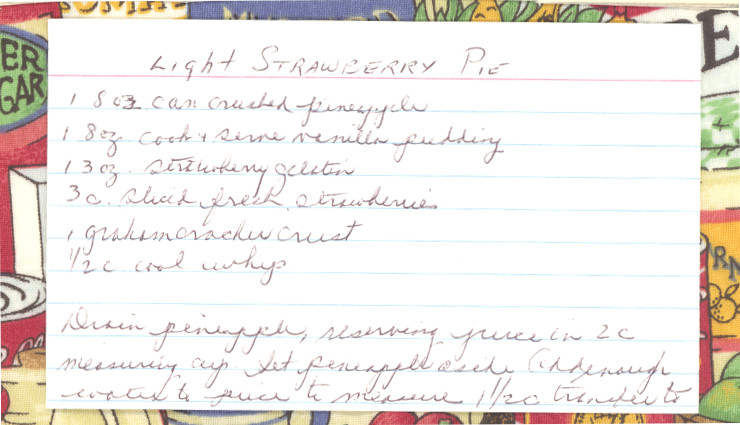 Light Strawberry Pie
1 8 oz can crushed pineapple
1 8 oz. cook + serve vanilla pudding
1 3 oz. strawberry gelatin
3 c. sliced fresh strawberries
1 graham cracker crust
1/2 c cool whip
Drain pineapple, reserving juice in 2 c
measuring cup. Set pineapple aside Add enough
water to juice to measure 1 1/2 c transfer to
ER
GAR
E
RN